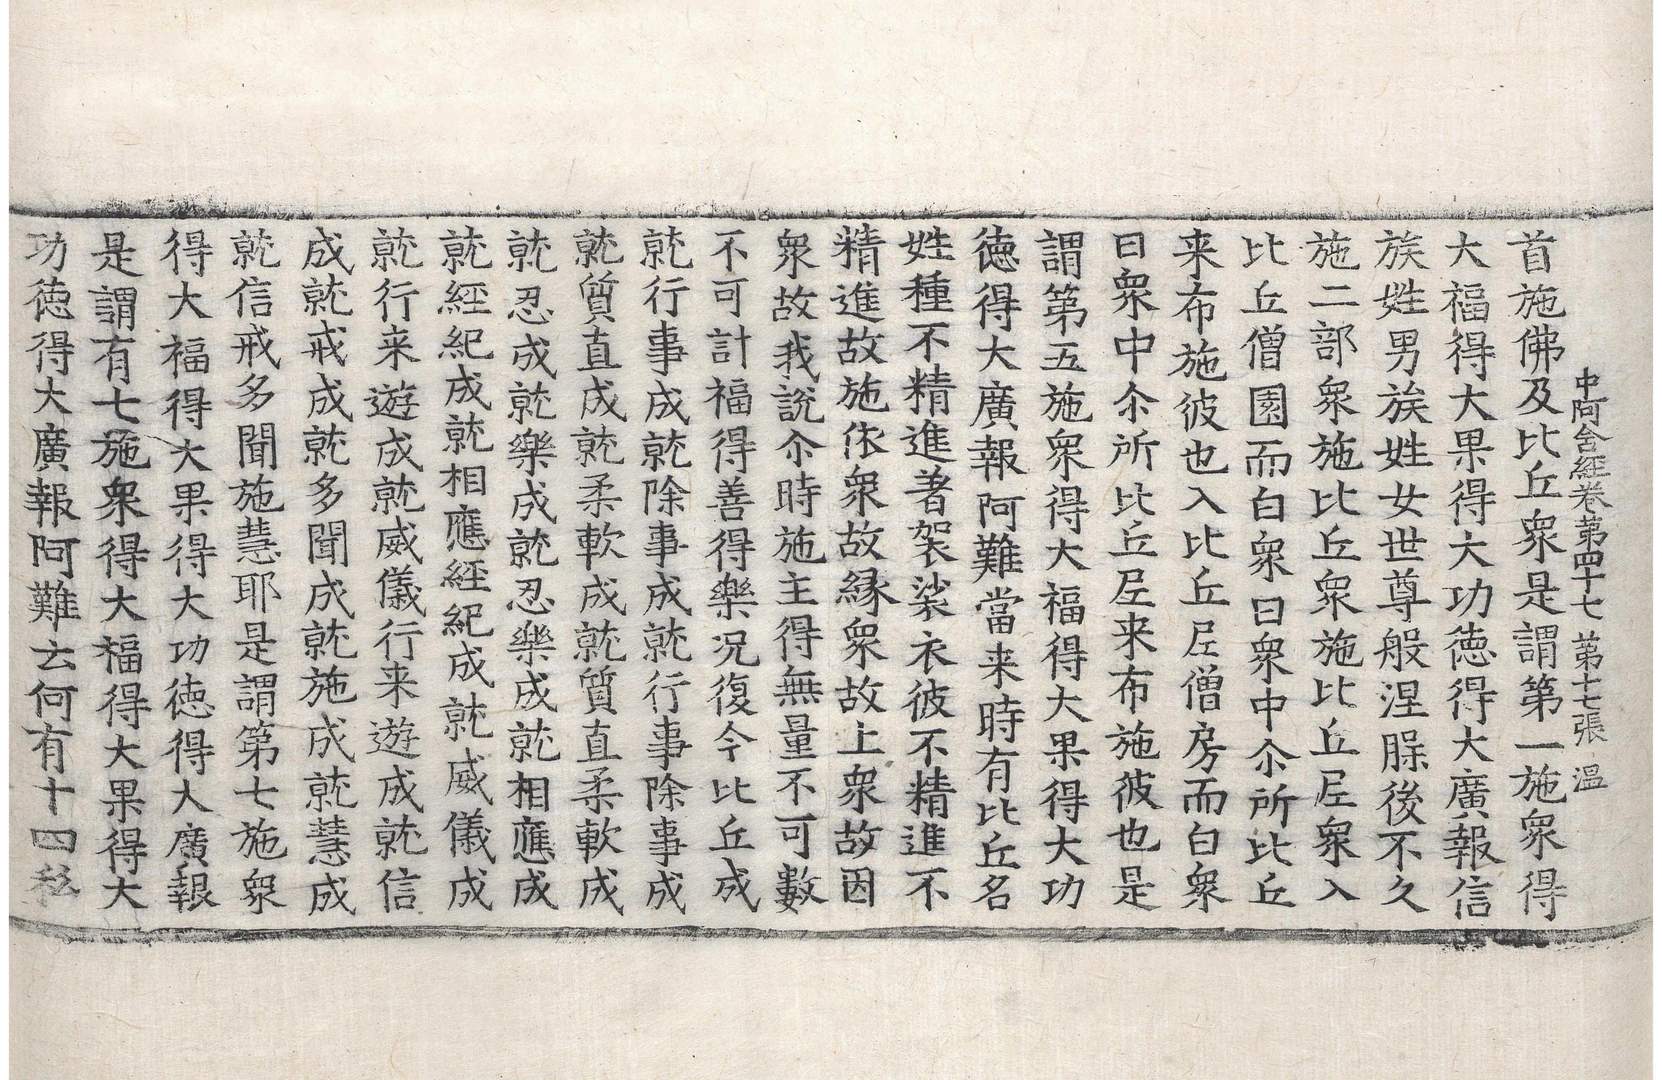 中阿含經卷第四十七 第十七張 溫
首施佛及比丘衆是謂第一施衆得
大福得大果得大功徳得大廣報信
族姓男族姓女世尊般涅脵後不久
施二部衆施比丘衆施比丘尼衆入
比丘僧園而白衆曰衆中尒所比丘
来布施彼也入比丘尼僧房而白衆
曰衆中尒所比丘尼来布施彼也是
謂第五施衆得大福得大果得大功
徳得大廣報阿難當来時有比丘名
姓種不精進著袈裟衣彼不精進不
精進故施依衆故縁衆故上衆故因
衆故我說尒時施主得無量不可數
不可計福得善得樂况復今比丘成
就行事成就除事成就行事除事成
就質直成就柔軟成就質直柔軟成
就忍成就樂成就忍樂成就相應成
就經紀成就相應經紀成就威儀成
就行来遊成就威儀行来遊成就信
成就戒成就多聞成就施成就慧成
就信戒多聞施慧耶是謂第七施衆
得大福得大果得大功徳得大廣報
是謂有七施衆得大福得大果得大
功徳得大廣報阿難云何有十四私